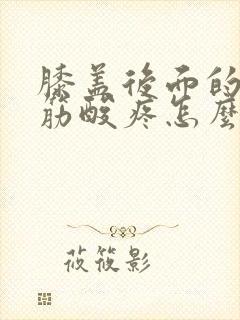 膝盖後而的
筋酸疼怎麼
莜筱影